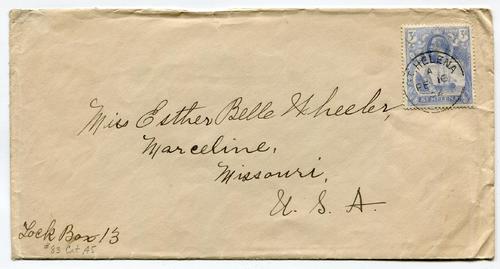 3 3
ST HELENA
A
16
ST. HELENA
Miss Esther Belle Wheeler,
Marceline,
Missouri,
U. S. A.
Lock Box 13
#83 Cat A5